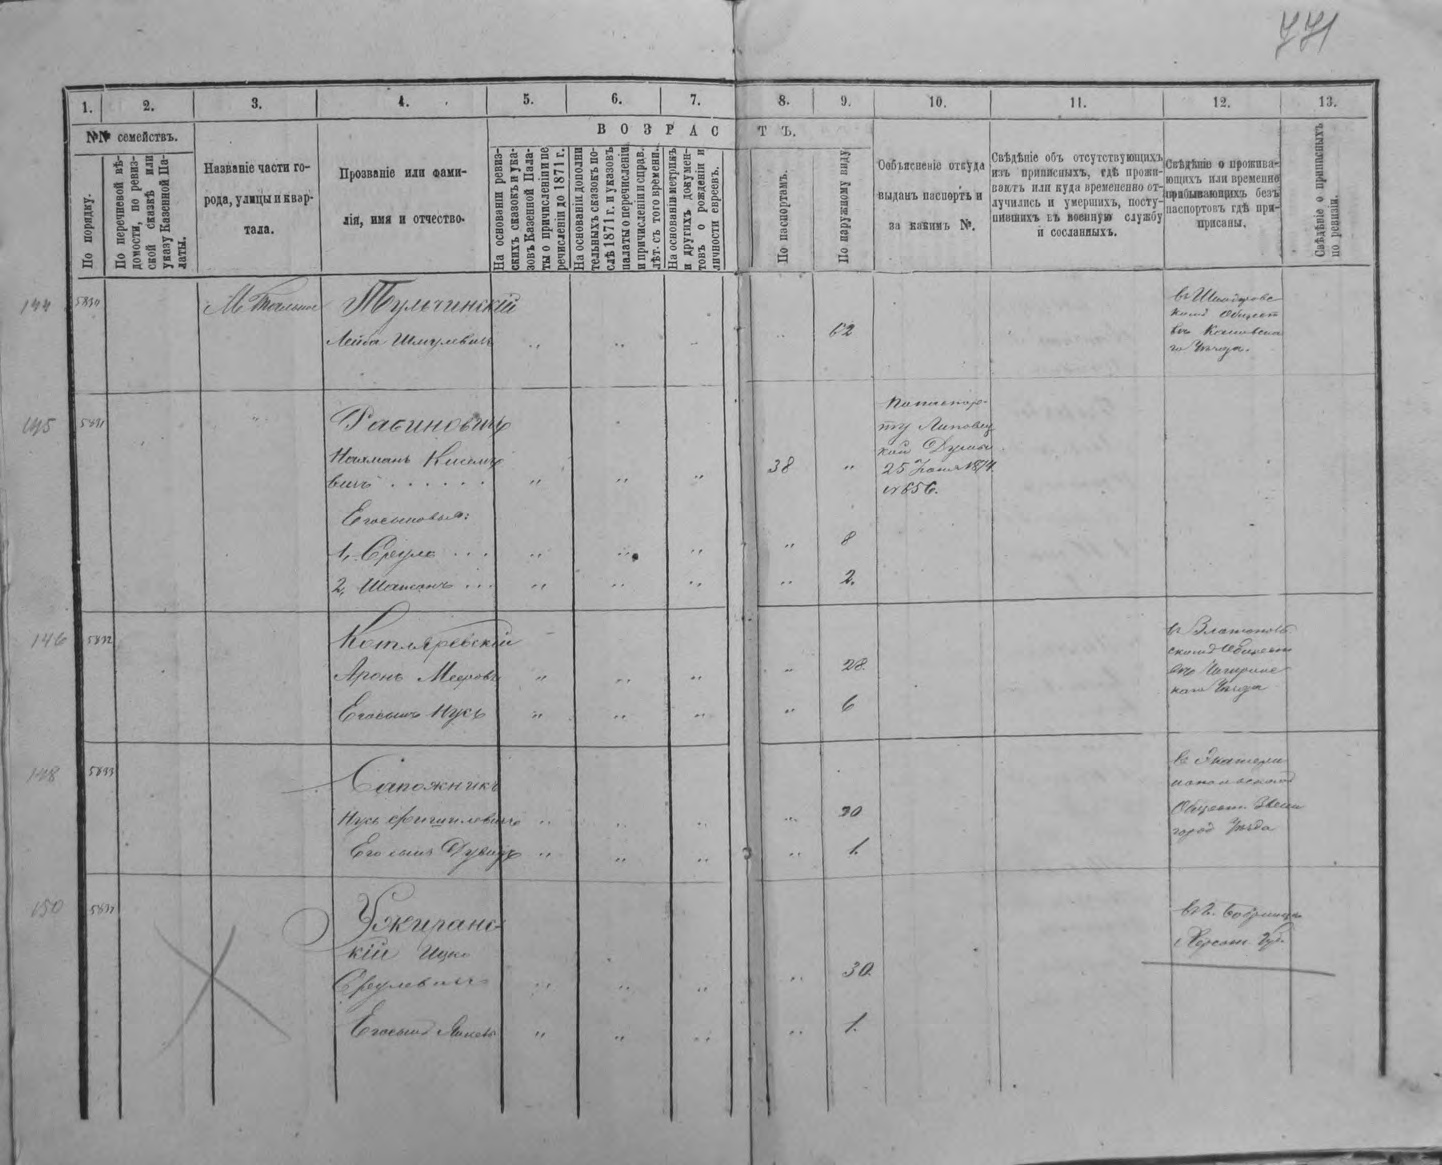 771
1.
2.
3.
4.
5.
6.
7.
8.
9.
10.
11.
12.
13.
№№ семействъ.
В О З Р А С Т Ъ.
По порядку.
По перечневой вѣ-
домости, по ревиз-
ской сказкѣ или
указу Казенной Па-
латы.
Названіе части го-
рода, улицы и квар-
тала.
Прозваніе или фами-
лія, имя и отчество.
На основаніи ревиз-
скихъ сказокъ и ука-
зовъ Казенной Пала-
ты о причисленіи и пе
речисленіи до 1871 г.
На основаніи дополни
тельныхъ сказокъ по-
слѣ 1871 г. и указовъ
палаты о перечисленіи
и причисленіи и справ.
лѣт. съ того времени.
На основаніи метрикъ
и другихъ докумен-
товъ о рожденіи и
личности евреевъ.
По паспортамъ.
По наружному виду
Объясненіе откуда
выданъ паспортъ и
за какимъ №.
Свѣдѣніе объ отсутствующихъ
изъ приписныхъ, гдѣ прожи-
ваютъ или куда временно от-
лучились и умершихъ, посту-
пившихъ въ военную службу
и сосланныхъ.
Свѣдѣніе о прожива-
ющихъ или временно
прибывающихъ безъ
паспортовъ гдѣ при-
писаны.
Свѣдѣніе о приписныхъ
по ревизіи.
144
5830
Тульчинскій
Лейба Шмулевичъ
62
145
5831
Рабиновичъ
Нахманъ Кисиле
вичъ
38
По паспор-
ту Липовец
кой Думы
25 Іюня 1874
№ 656.
Его сыновья:
1, Сруль
8
2, Шаманъ
2.
146
5832
Котляревскій
Аронъ Мееровъ
28
Его сынъ Нусь
6
148
5833
Сапожникъ
Нусь Фишилевичъ
30
Его сынъ Дувидъ
1.
въ Екатери
нопольскомъ
Общест. Звени
город Уѣзда
150
Ужичанс
кій Ицко
Срулевичъ
30.
въ г. Бобринцѣ
Херсон. Губ.
Его сынъ
1.